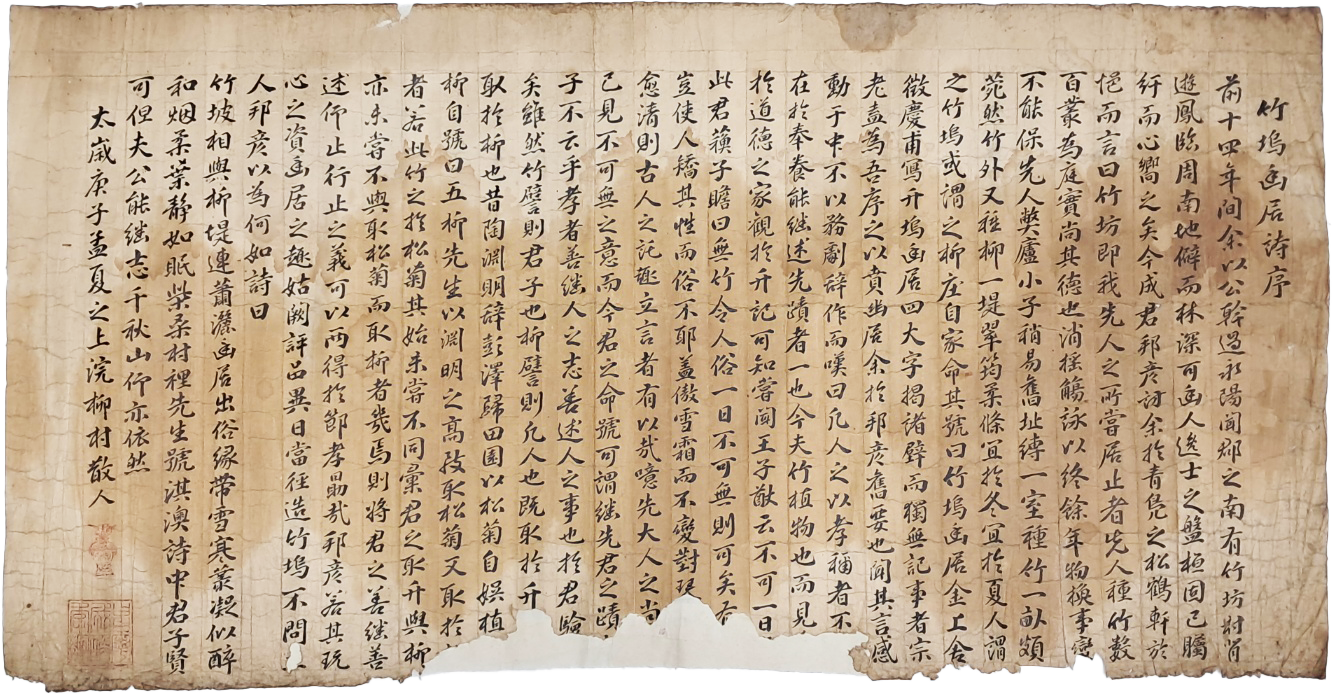 竹塢幽居詩序
前十四年間余以公幹過永陽聞郡之南有竹坊對肖
遊鳳臨周南地僻而林深可幽人逸士之盤桓固已騰
紆而心嚮之矣今成君邦彦訪余於青鳧之松鶴軒於
悒而言曰竹坊即我先人之所嘗居止者先人種竹數
百叢為庭實尚其德也消搖觴詠以終餘年物換事變
不能保先人獘廬小子稍易舊址縳一室種竹一畝頗
菀然竹外又種柳一堤翠筠柔條宜於冬宜於夏人謂
之竹塢或謂之柳庄自家命其號曰竹塢幽居金上舍
徵慶甫寫竹塢幽居四大字揭諸壁而獨無記事者宗
老盍為吾序之以賁幽居余於邦彦舊要也聞其言感
動于中不以務劇辞作而嘆曰凡人之以孝稱者不
在於奉養能継述先蹟者一也今夫竹植物也而見
於道德之家觀於竹記可知嘗聞王子猷云不可一日
此君蘓子瞻曰無竹令人俗一日不可無則可矣
豈使人矯其性而俗不耶盖傲雪霜而不變對
愈清則古人之託趣立言者有以哉噫先大人之尚
已見不可無之意而今君之命號可謂継先君之蹟
子不云乎孝者善継人之志善述人之事也於君驗
矣雖然竹譬則君子也柳譬則凡人也既取於竹
取於柳也昔陶淵明辞彭澤歸田園以松菊自娯植
柳自號曰五柳先生以淵明之高孜取松菊又取於
者若此竹之於松菊其始未嘗不同彙君之取竹與柳
亦未嘗不與取松菊而取柳者幾焉則將君之善継善
述仰止行止之義可以両得於節孝勗哉邦彦若其玩
心之資幽居之趣姑闕評品異日當径造竹塢不問
人邦彦以為何如詩曰
竹坡相與柳堤連蕭灑幽居出俗縁帯雪寒叢凝似醉
和烟柔葉静如眠柴桑村裡先生號淇澳詩中君子賢
可但夫公能継志千秋山仰亦依然
太歲庚子孟夏之上浣柳村散人